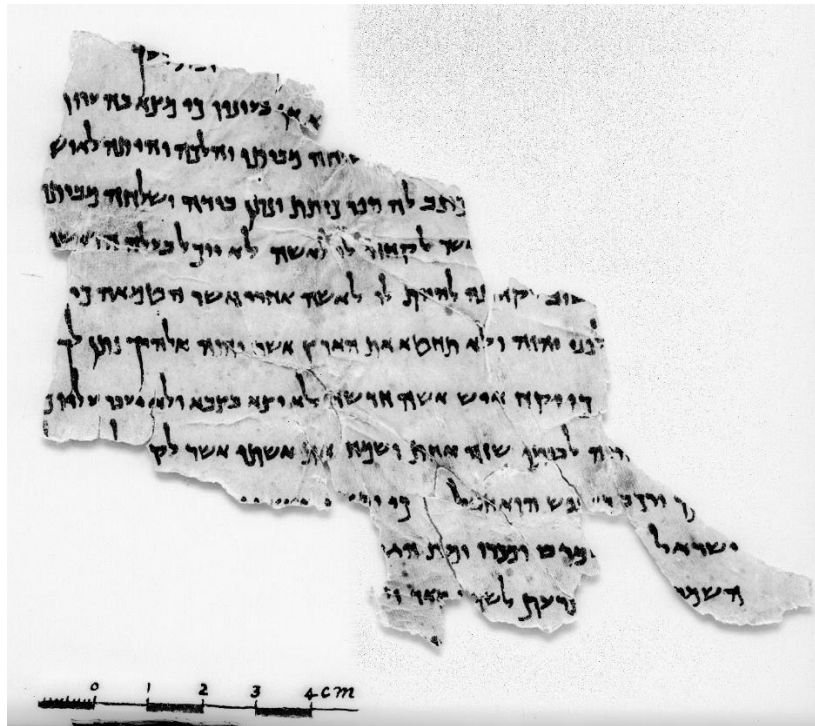 בעיניו כי מצא בה ערות
מביתו והלכה והיתה לאיש
כתב לה ספר כריתת ונתן בידה ושלחה מביתו
אשר לקחה לו לאשה לא יוכל בעלה
לקחתה להיות לו לאשה אחרי אשר הטמאה כי
לפני יהוה ולא תחטא את הארץ אשר יהוה אלהיך נתן לך
כי יקח איש אשה חדשה לא יצא בצבא ולא יעבר עליו
יהיה לביתו שנה אחת ושמח את אשתו אשר לק
ורכב כי נפש הוא חבל כי
ישראל ומכרו ומת
השמר צרעת לשמר מאד
0 1 2 3 4 cm